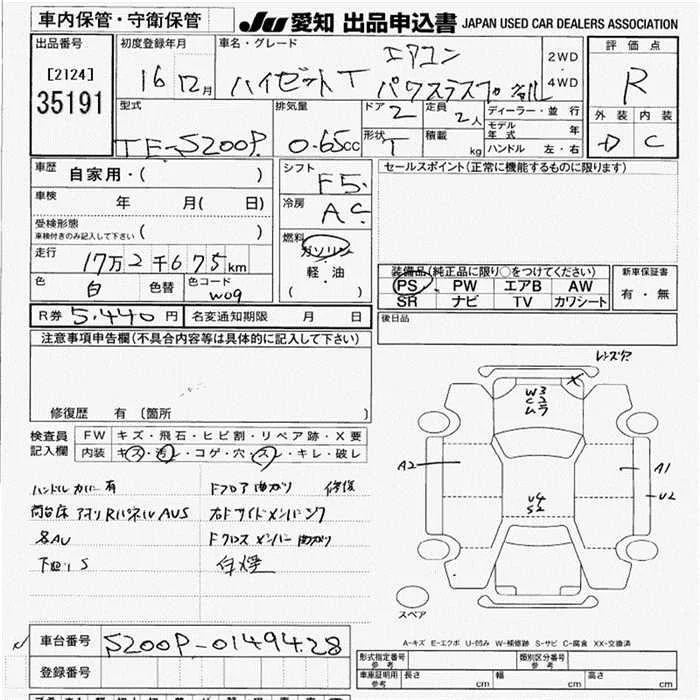 車内保管・守衛保管
JU 愛知 出品申込書 JAPAN USED CAR DEALERS ASSOCIATION
出品番号
[2124]
35191
初度登録年月
16 12月
車名・グレード
エアコン
ハイゼットT
2WD
・
4WD
評価点
R
外装 内装
D C
型式
TE-S200P
排気量
0.65cc
ドア 2
形状 T
定員 2人
積載 kg
ディーラー・並行
モデル年式 年
ハンドル 左・右
車歴 自家用・( )
車検 年 月( 日)
受検形態
車検付きのみ記入して下さい ( )
走行 17万2千675km
色 白 色替 色コード W09
R券 5,440円 名変通知期限 月 日
シフト F5
冷房 AC
燃料
ガソリン
軽・油
( )
セールスポイント(正常に機能するものに限ります)
装備品(純正品に限り○をつけてください)
PS PW エアB AW
SR ナビ TV カワシート
新車保証書
有・無
後日品
注意事項申告欄(不具合内容等は具体的に記入して下さい)
修復歴 有 〔箇所 〕
検査員記入欄
FW キズ・飛石・ヒビ割・リペア跡・X要
内装 キズ・汚レ・コゲ・穴・スレ・キレ・破レ
ハンドルカバー有
荷台床 アオリRパネルAUS
各AU
下廻りS
Fフロア曲がり 修復
Fクロスメンバー曲がり
白煙
W3
C2
ムラ
X
A2
A1
U2
U4
S2
スペア
A-キズ E-エクボ U-凹み W-補修跡 S-サビ C-腐食 XX-交換済
車台番号 S200P-0149428
登録番号
形式指定番号
参考
類別区分番号
参考
車庫証明用
参考
長さ cm 幅 cm 高さ cm